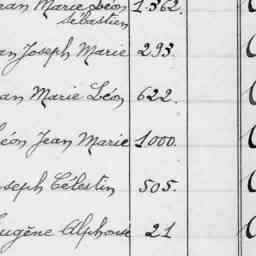 ean Marie Léon 1.362.
Sébastien
an Joseph Marie 293.
an Marie Léon 622.
éon Jean Marie 1000.
oseph Célestin 505.
ugène Alphonse 21